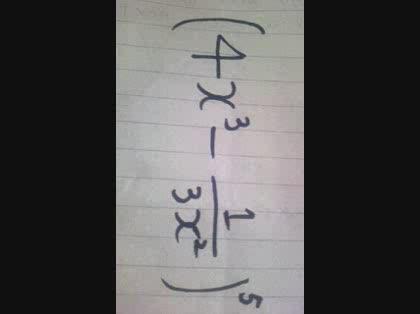 (4x³ - 1/3x²)⁵